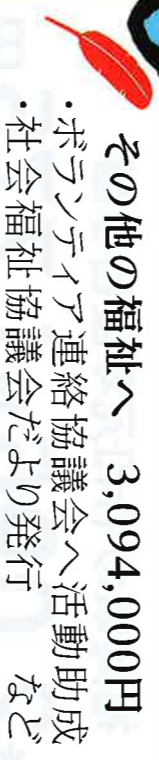 その他の福祉へ 3,094,000円
・ボランティア連絡協議会へ活動助成
・社会福祉協議会だより発行 など